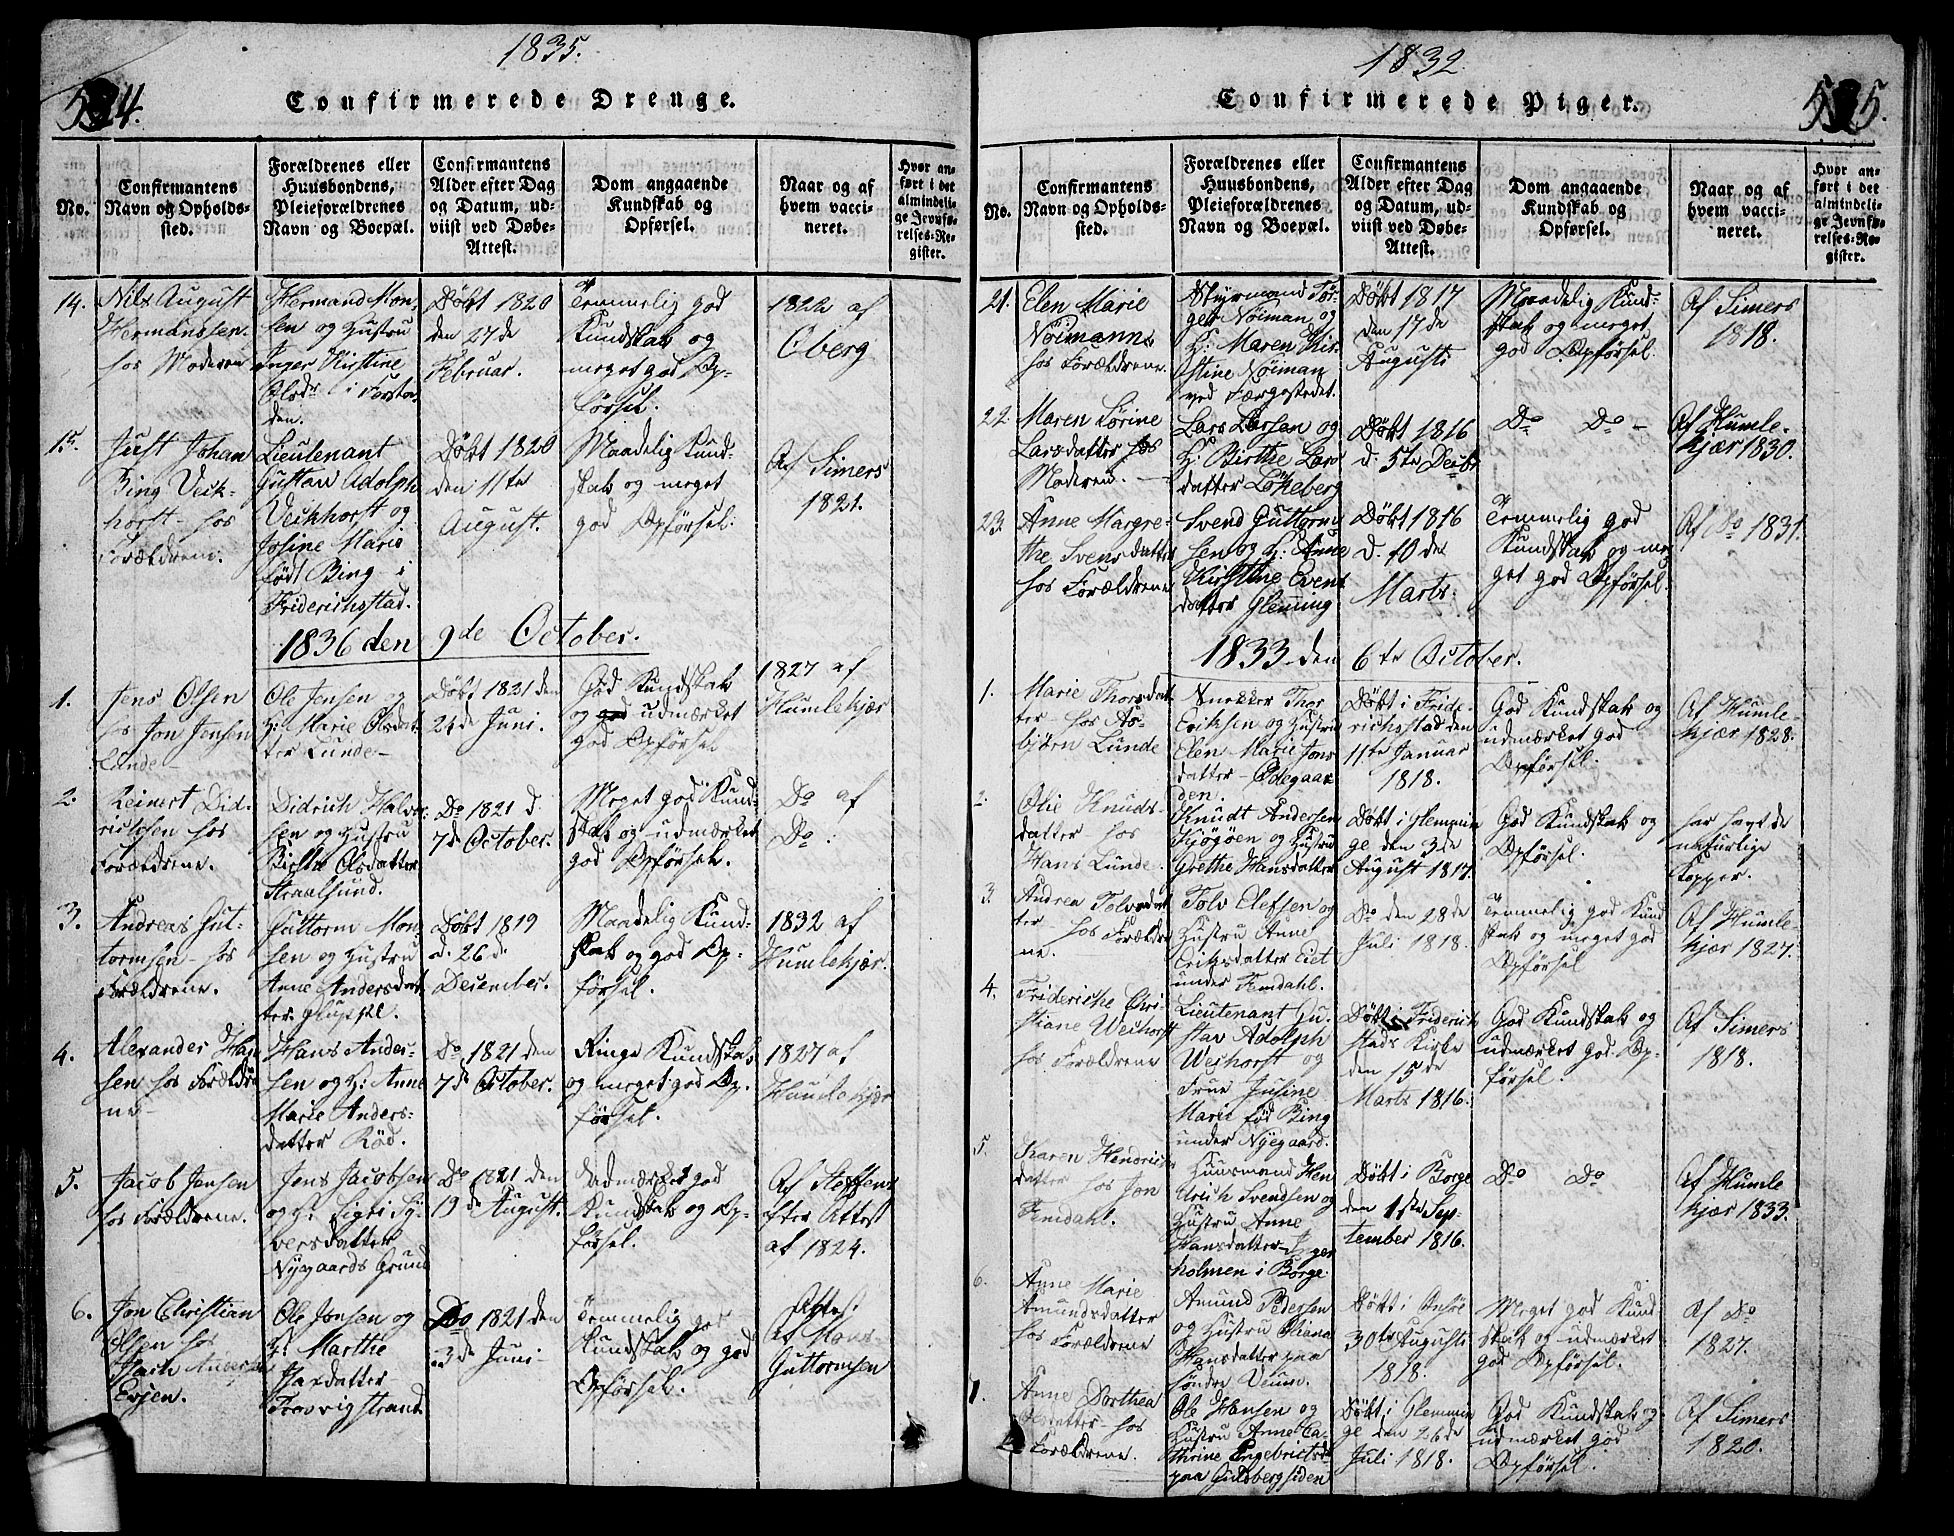 1835.
534.
Confirmerede Drenge.
No.
Confirmantens
Navn og Opholds-
sted.
Forældrenes eller
Huusbondens,
Pleieforældrenes
Navn og Boepæl.
Confirmantens
Alder efter Dag
og Datum, ud-
viist ved Døbe-
Attest.
Dom angaaende
Kundskab og
Opførsel.
Naar og af
hvem vacci-
neret.
Hvor an-
ført i det
almindeli-
ge Jevnfø-
relses-Re-
gister.
14.
Nils August
Hermansen
hos Moderen
Hermand Mon-
sen og Hustru
Inger Kirstine
Olsdr i Forsta-
den.
Døbt 1820
den 27de
Februar.
Temmelig god
Kundskab og
meget god Op-
førsel.
1822 af
Oberg
15.
Just Johan
Bing Veik-
horst hos
Forældrene.
Lieutenant
Gustav Adolph
Veikhorst og
Josine Marie
født Bing i
Friderichstad.
Døbt 1820
den 11te
August.
Maadelig Kund-
skab og meget
god Opførsel.
Af Simers
1821.
1836 den 9de October.
1.
Jens Olsen
hos Jon Jensen
Lunde
Ole Jensen og
H: Marie Olsdat-
ter Lunde
Døbt 1821 den
24de Juni.
God Kundskab
og god udmærket
god Opførsel
1827 af
Humlekjær
2.
Reinert Did-
richsen hos
Forældrene.
Didrich Halvor-
sen og Hustru
Birthe Olsdatter
Straalsund.
Do 1821 d.
7de October.
Meget god Kund-
skab og udmærket
god Opførsel.
Do af
Do.
3.
Andreas Gut-
tormsen hos
Forældrene.
Guttorm Mon-
sen og Hustru
Anne Andersdat-
ter
Døbt 1819
d. 26de
December.
Maadelig Kund-
skab og god Op-
førsel.
1832 af
Humlekjær.
4.
Alexander Han-
sen hos Forældre-
ne
Hans Ander-
sen og H: Anne
Marie Anders-
datter Röd.
Do 1821 den
7de October.
Ringe Kundskab
og meget god Op-
førsel.
1827 af
Humlekjær
5.
Jacob Jensen
hos Forældrene.
Jens Jacobsen
og H: Sigri Sy-
versdatter
Nygaards Grund
Do 1821 den
19de August.
Udmærket god
Kundskab og Op-
førsel.
Af Steffens
efter Attest
af 1824.
6.
Jon Christian
Olsen hos
Anders
Evjen.
Ole Jonsen og
H: Marthe
datter
Trosvigstrand
Do 1821 den
3de Juni
Temmelig god
Kundskab og god
Opførsel.
Attest
Af Mons
Guttormsen
1832
535.
Confirmerede Piger.
No.
Confirmantens
Navn og Opholds-
sted.
Forældrenes eller
Huusbondens,
Pleieforældrenes
Navn og Boepæl.
Confirmantens
Alder efter Dag
og Datum, ud-
viist ved Døbe-
Attest.
Dom angaaende
Kundskab og
Opførsel.
Naar og af
hvem vacci-
neret.
Hvor an-
ført i det
almindeli-
ge Jevnfø-
relses-Re-
gister.
21.
Elen Marie
Nöimann
hos Forældrene.
Styrmand Tör-
ger Nöiman og
H: Maren Kir-
stine Nöiman
ved Færgestedet.
Døbt 1817
den 17de
Augusti
Maadelig Kund-
skab og meget
god Opførsel.
Af Simers
1818.
22.
Maren Sörine
Larsdatter hos
Moderen.
Lars Larsen og
H: Birthe Lars-
datter Lökeberg
Døbt 1816
d. 5te Decbr.
Do Do
Af Humle-
kjær 1830.
23.
Anne Margre-
the Svensdatter
hos Forældrene
Svend Guttorm-
sen og H: Anne
Kirstine Evens-
datter Glemming
Døbt 1816
d. 10de
Marts.
Temmelig god
Kundskab og me-
get god Opførsel.
Af Do 1831.
1833 den 6te October.
1.
Marie Thorsdat-
ter hos As-
björn Lunde
Snekker Thor
Eriksen og Hustru
Elen Marie Jons-
datter Ödegaar-
den.
Døbt i Fride-
richsstad den
11te Januar
1818.
God Kundskab og
udmærket god
Opførsel.
Af Humle-
kjær 1828.
2.
Olie Knuds-
datter hos
Hans Lunde.
Knudt Andersen
Kjögöen og Hustru
Grethe Hansdatter
Døbt i Glemmin-
ge den 3de
August 1817.
God Kundskab og
Opførsel.
har havt de
naturlige
Kopper.
3.
Andrea Tolvsdat-
ter hos Forældre-
ne.
Tolv Elefsen og
Hustru Anne
Eriksdatter Eiet
under Femdahl.
Do den 28de
Juli 1818.
Temmelig god Kund-
skab og meget god
Opførsel
Af Humle-
kjær 1827.
4.
Friderikke Chri-
stiane Weihorst
hos Forældrene
Lieutenant Gu-
stav Adolph
Weihorst og
Frue Jusine
Marie fød Bing
under Nyegaard.
Døbt i Friderich-
stads Kirke
den 15de
Marts 1816.
God Kundskab og
udmærket god Op-
førsel.
Af Simers
1818.
5.
Karen Hendrichs-
datter hos Jon
Femdahl.
Huusmand Hen-
drich Svendsen og
Hustru Anne
Hansdatter
holmen i Borge.
Døbt i Borge
den 1ste Sep-
tember 1816.
Do Do
Af Humle
kjær 1833.
6.
Anne Marie
Amundsdatter
hos Forældrene
Amund Pedersen
og Hustru Oliana
Hansdatter paa
söndre Veum.
Døbt i Onsöe
30te Augusti
1818.
Meget god Kund
skab og udmærket
god Opførsel.
Af Do
1827.
7.
Anne Dorthea
Olsdatter hos
Forældrene.
Ole Hansen og
Hustru Anne Ca-
thrine Engebrietsdr
paa Guldbergsiden
Døbt i Glemmin-
ge den 26de
Juli 1818.
God Kundskab og
udmærket god
Opførsel.
Af Simers
1820.